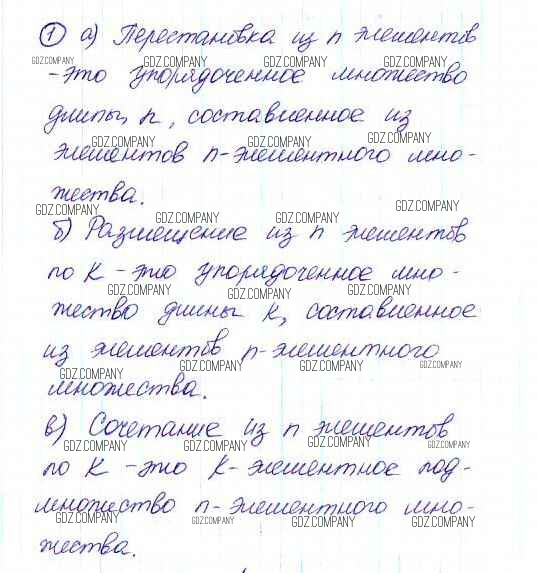 1 а) Перестановка из n элементов
GDZ.COMPANY GDZ.COMPANY GDZ.COMPANY GDZ.COMPANY
- это упорядоченное множество
длины n, составленное из
GDZ.COMPANY GDZ.COMPANY GDZ.COMPANY
элементов n-элементного мно-
жества.
GDZ.COMPANY GDZ.COMPANY GDZ.COMPANY GDZ.COMPANY
б) Размещение из n элементов
по к - это упорядоченное мно-
GDZ.COMPANY GDZ.COMPANY GDZ.COMPANY
жество длины к, составленное
из элементов n-элементного
GDZ.COMPANY GDZ.COMPANY GDZ.COMPANY GDZ.COMPANY
множества.
в) Сочетание из n элементов
GDZ.COMPANY GDZ.COMPANY GDZ.COMPANY GDZ.COMPANY
по к - это к-элементное под-
множество n-элементного мно-
GDZ.COMPANY GDZ.COMPANY GDZ.COMPANY GDZ.COMPANY
жества.